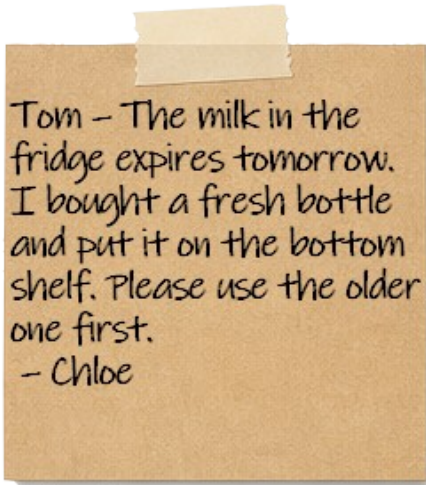 Tom – The milk in the
fridge expires tomorrow.
I bought a fresh bottle
and put it on the bottom
shelf. Please use the older
one first.
– Chloe